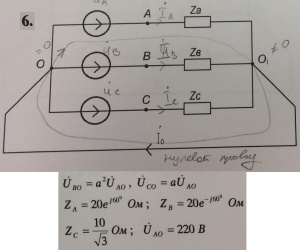 6.
A
İ_A
Z_A
=0
U̇_B
B
İ_B
Z_B
O
O₁
≠0
U̇_C
C
İ_C
Z_C
İ₀
нулевой провод
U̇_BO = a²U̇_AO , U̇_CO = aU̇_AO
Z_A = 20e^{j60°} Ом ; Z_B = 20e^{-j60°} Ом
Z_C = 10/√3 Ом ; U̇_AO = 220 В